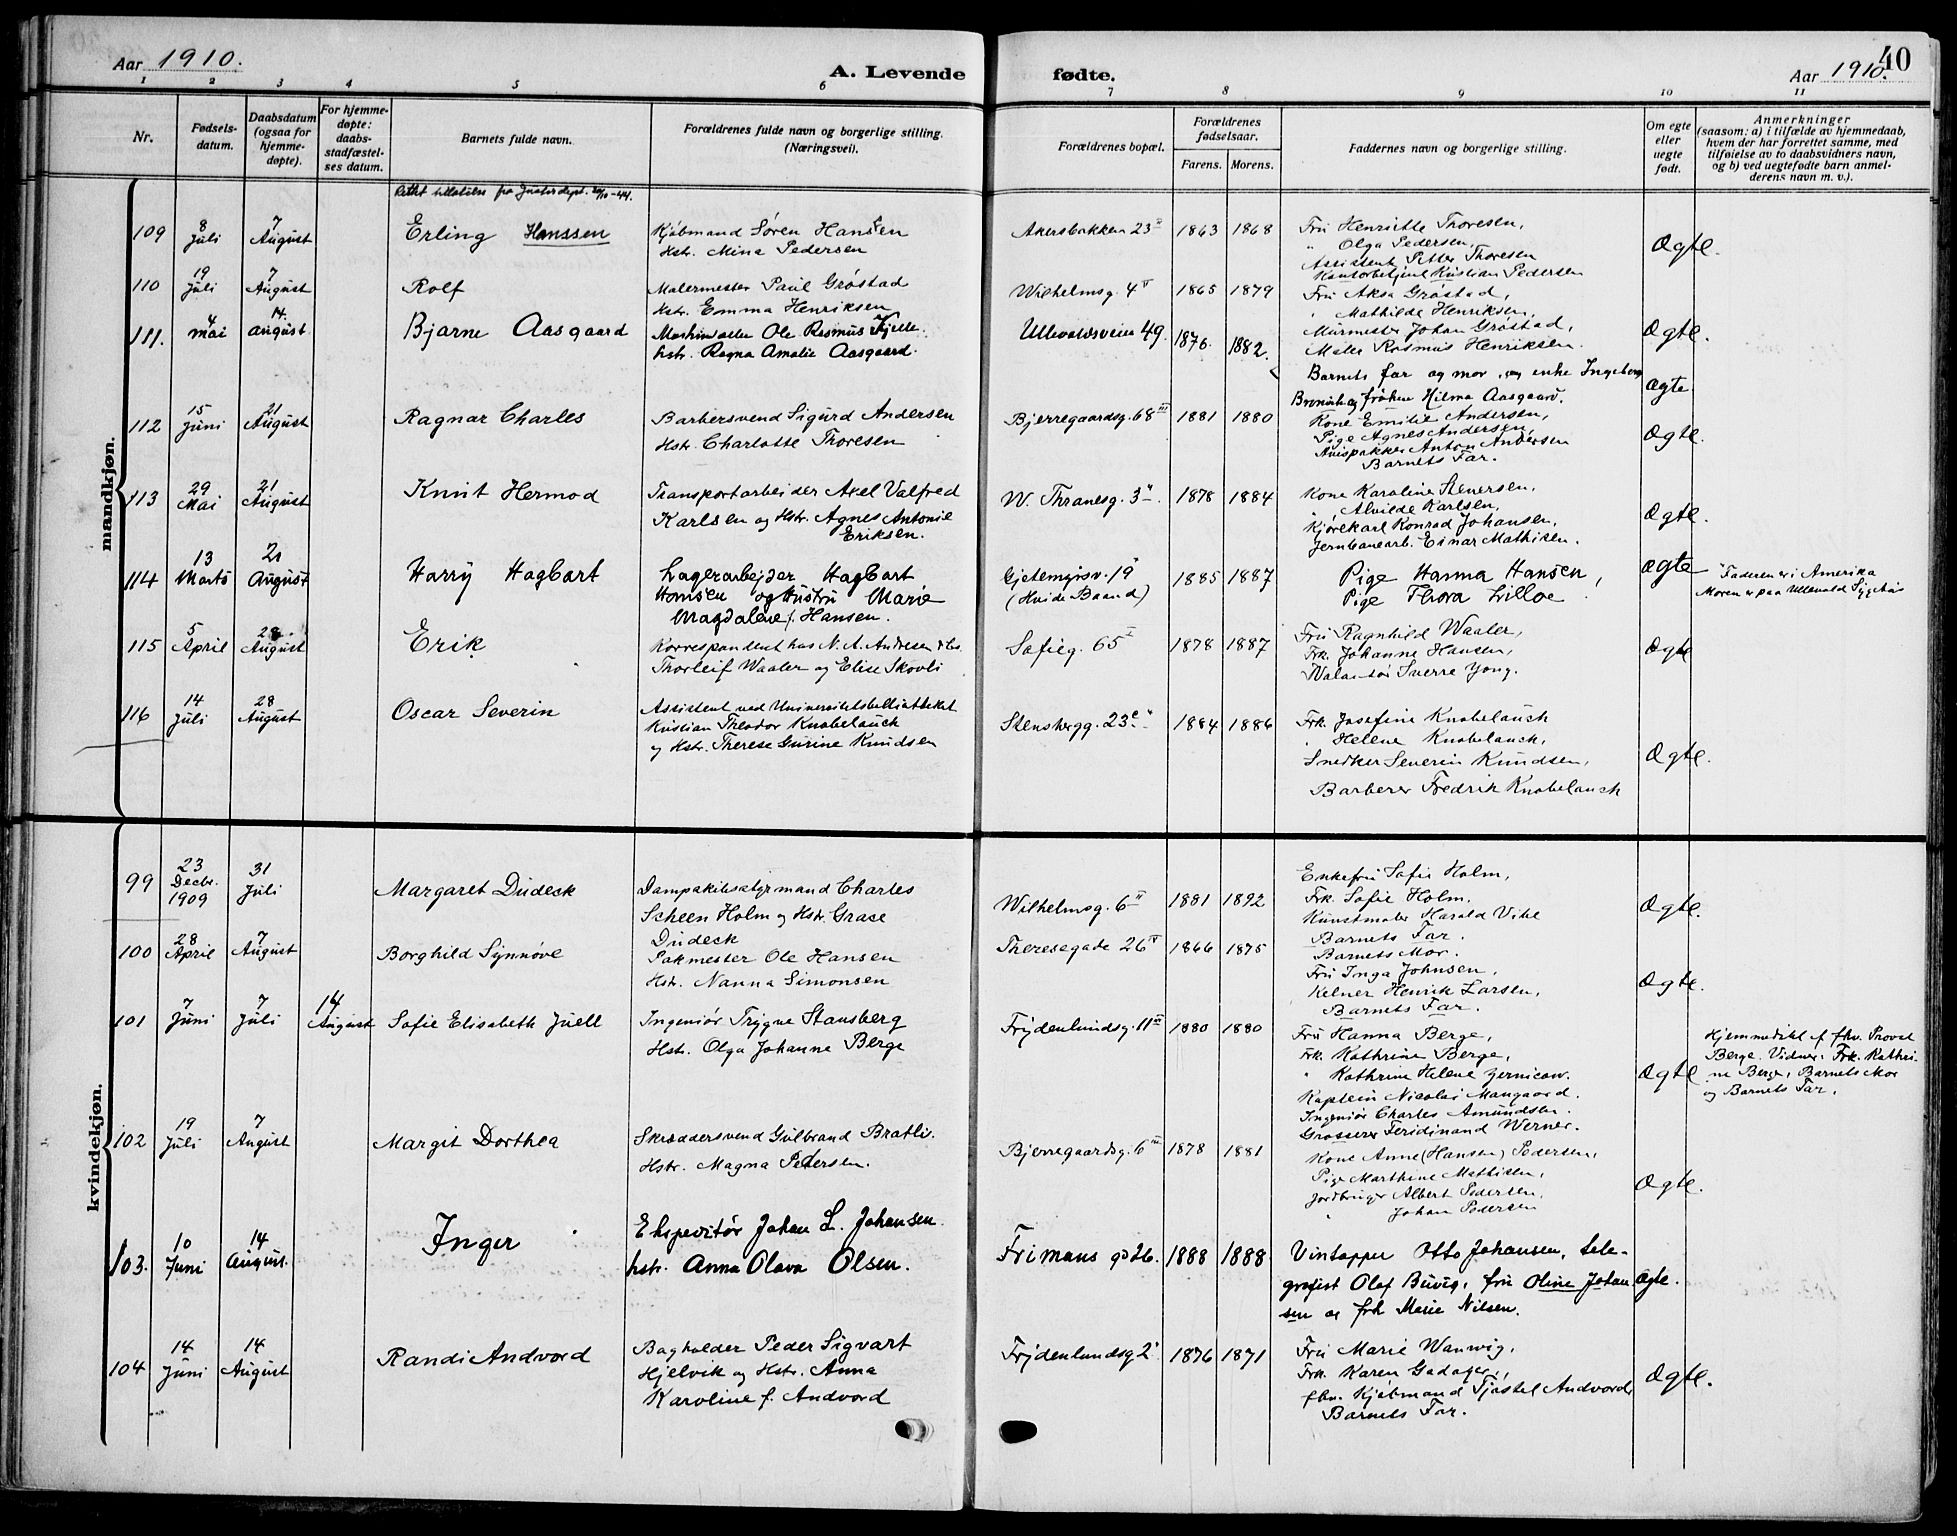 Aar 1910.
A. Levende fødte.
Aar 1910.
40
1 2 3 4 5 6 7 8 9 10 11
Nr.
Fødsels-
datum.
Daabsdatum
(ogsaa for
hjemme-
døpte).
For hjemme-
døpte:
daabs-
stadfæstel-
ses datum.
Barnets fulde navn.
Forældrenes fulde navn og borgerlige stilling.
(Næringsvei).
Forældrenes bopæl.
Forældrenes
fødselsaar.
Farens. Morens.
Faddernes navn og borgerlige stilling.
Om egte
eller
uegte
født.
Anmerkninger
(saasom: a) i tilfælde av hjemmedaab,
hvem der har forrettet samme, med
tilføielse av to daabsvidners navn,
og b) ved uegtefødte barn anmel-
derens navn m. v.).
mandkjøn.
109
8
Juli
7
August
Erling Hanssen
Kjøbmand Søren Hansen
Hstr. Mina Pedersen
Akersbakken 23
1863 1868
Fru Henriette Thoresen,
" Olga Pedersen,
Assistent Petter Thoresen
Kontorbetjent Kristian Pedersen
Ægte.
110
19
Juli
7
August
Rolf
Malermester Paul Grøstad
Hstr. Emma Henriksen
Wilhelmsg. 4
1865 1879
Fru Aksa Grøstad,
" Mathilde Henriksen,
Murmester Johan Grøstad,
Maler Rasmus Henriksen.
Ægte.
111.
4
mai
14.
august
Bjarne Aasgaard
Ole Rasmus
hstr. Ragna Amalie Aasgaard.
Ullevoldsveien 49.
1876. 1882.
Barnets far og mor, enke Ingeborg
frøken Hilma Aasgaard.
Ægte
112
15
Juni
21
August
Ragnar Charles
Barbersvend Sigurd Andersen
Hstr. Charlotte Thoresen
Bjerregaardsg. 68 III
1881 1880
Kone Emilie Andersen,
Pige Agnes Andersen
Avispakker Anton Andersen
Barnets Far.
Ægte.
113
29
Mai
21
August
Knut Hermod
Transportarbeider Axel Valfred
Karlsen og Hstr. Agnes Antonie
Eriksen.
W. Thranesg. 3
1878 1884
Kone Karoline Stenersen,
" Alvilde Karlsen,
Kjørekarl Konrad Johansen,
Jernbanearb. Einar Mathisen.
Ægte.
114
13
Marts
21
August
Harry Hagbart
Lagerarbejder Hagbart
Hansen og Hustru Marie
Magdalene f. Hansen.
Gjetemyrsv. 19
(Hvide Baand)
1885 1887
Pige Hanna Hansen,
Pige Thora Lilloe
Ægte
Faderen er i Amerika
Moren er paa Ullevold Sygehus
115
5
April
28
August
Erik
Korrespondent hos N. A. Andresen & Co.
Thorleif Waaler og Elise Skovli
Sofieg. 65 I
1878 1887
Fru Ragnhild Waaler,
Frk. Johanne Hansen,
Sverre Yong.
Ægte
116
14
Juli
28
August
Oscar Severin
Assistent ved Universitetsbibliotheket
Kristian Theodor Knobelauch
og Hstr. Therese Gurine Knudsen
Stensbergg. 23c
1884 1886
Frk. Josefine Knobelauch
" Helene Knobelauch,
Snedker Severin Knudsen,
Barberer Fredrik Knobelauch
Ægte.
kvindekjøn.
99
23
Decbr.
1909
31
Juli
Margaret Dudeck
Dampskibsstyrmand Charles
Scheen Holm og Hstr. Grase
Dudeck
Wilhelmsg. 6 II
1881 1892
Enkefru Sofie Holm,
Frk. Sofie Holm,
Kunstmaler Harald Vibe
Barnets Far.
Ægte.
100
28
April
7
August
Borghild Synnøve
Pakmester Ole Hansen
Hstr. Nanna Simonsen
Theresegade 26 IV
1866 1875
Barnets Mor.
Fru Inga Johnsen,
Kelner Henrik Larsen,
Barnets Far.
Ægte.
101
7
Juni
7
Juli
14
August
Sofie Elisabeth Juell
Ingeniør Trygve Stansberg
Hstr. Olga Johanne Berge
Frydenlundsg. 11 III
1880 1880
Fru Hanna Berge,
Frk. Kathrine Berge,
" Kathrine Helene Zernicow.
Kaptein Nicolai
Ingeniør Charles Amundsen.
Grosserer Feridinand Werner.
Ægte
Hjemmedøbt af fhv. Provst
Berge. Vidner: Frk. Kathri-
ne Berge, Barnets Mor
og Barnets Far.
102
19
Juli
7
August
Margit Dorthea
Skræddersvend Gulbrand Bratli.
Hstr. Magna Pedersen.
Bjerregaardsg. 6 III
1878 1881
Kone Anne (Hansen) Pedersen,
Pige Marthine Mathisen,
Jordbruger Albert Pedersen,
" Johan Pedersen
Ægte.
103.
10
Juni
14
August.
Inger
Ekspeditør Johan L. Johansen
hstr. Anna Olava Olsen.
Frimans gd 26.
1888 1888
Vintapper Otto Johansen, tele-
grafist Olaf Buvig, fru Oline Johan
sen og frk Marie Nilsen.
Ægte.
104
14
Juni
14
August
Randi Andvord
Bogholder Peder Sigvart
Hjelvik og Hstr. Anna
Karoline f. Andvord
Frydenlundsg 2
1876 1871
Fru Marie Wanvig,
Frk. Karen
fhv. Kjøbmand Andvord,
Barnets Far.
Ægte.